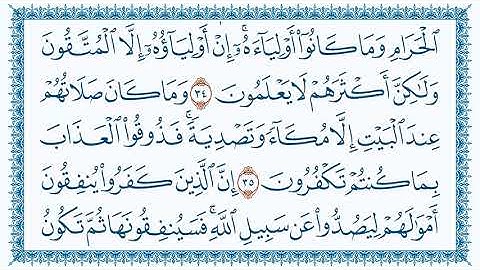 ٱلْحَرَامِ وَمَا كَانُوٓا۟ أَوْلِيَآءَهُۥٓ ۚ إِنْ أَوْلِيَآؤُهُۥٓ إِلَّا ٱلْمُتَّقُونَ
وَلَـٰكِنَّ أَكْثَرَهُمْ لَا يَعْلَمُونَ ٣٤ وَمَا كَانَ صَلَاتُهُمْ
عِندَ ٱلْبَيْتِ إِلَّا مُكَآءً وَتَصْدِيَةً ۚ فَذُوقُوا۟ ٱلْعَذَابَ
بِمَا كُنتُمْ تَكْفُرُونَ ٣٥ إِنَّ ٱلَّذِينَ كَفَرُوا۟ يُنفِقُونَ
أَمْوَٰلَهُمْ لِيَصُدُّوا۟ عَن سَبِيلِ ٱللَّهِ ۚ فَسَيُنفِقُونَهَا ثُمَّ تَكُونُ